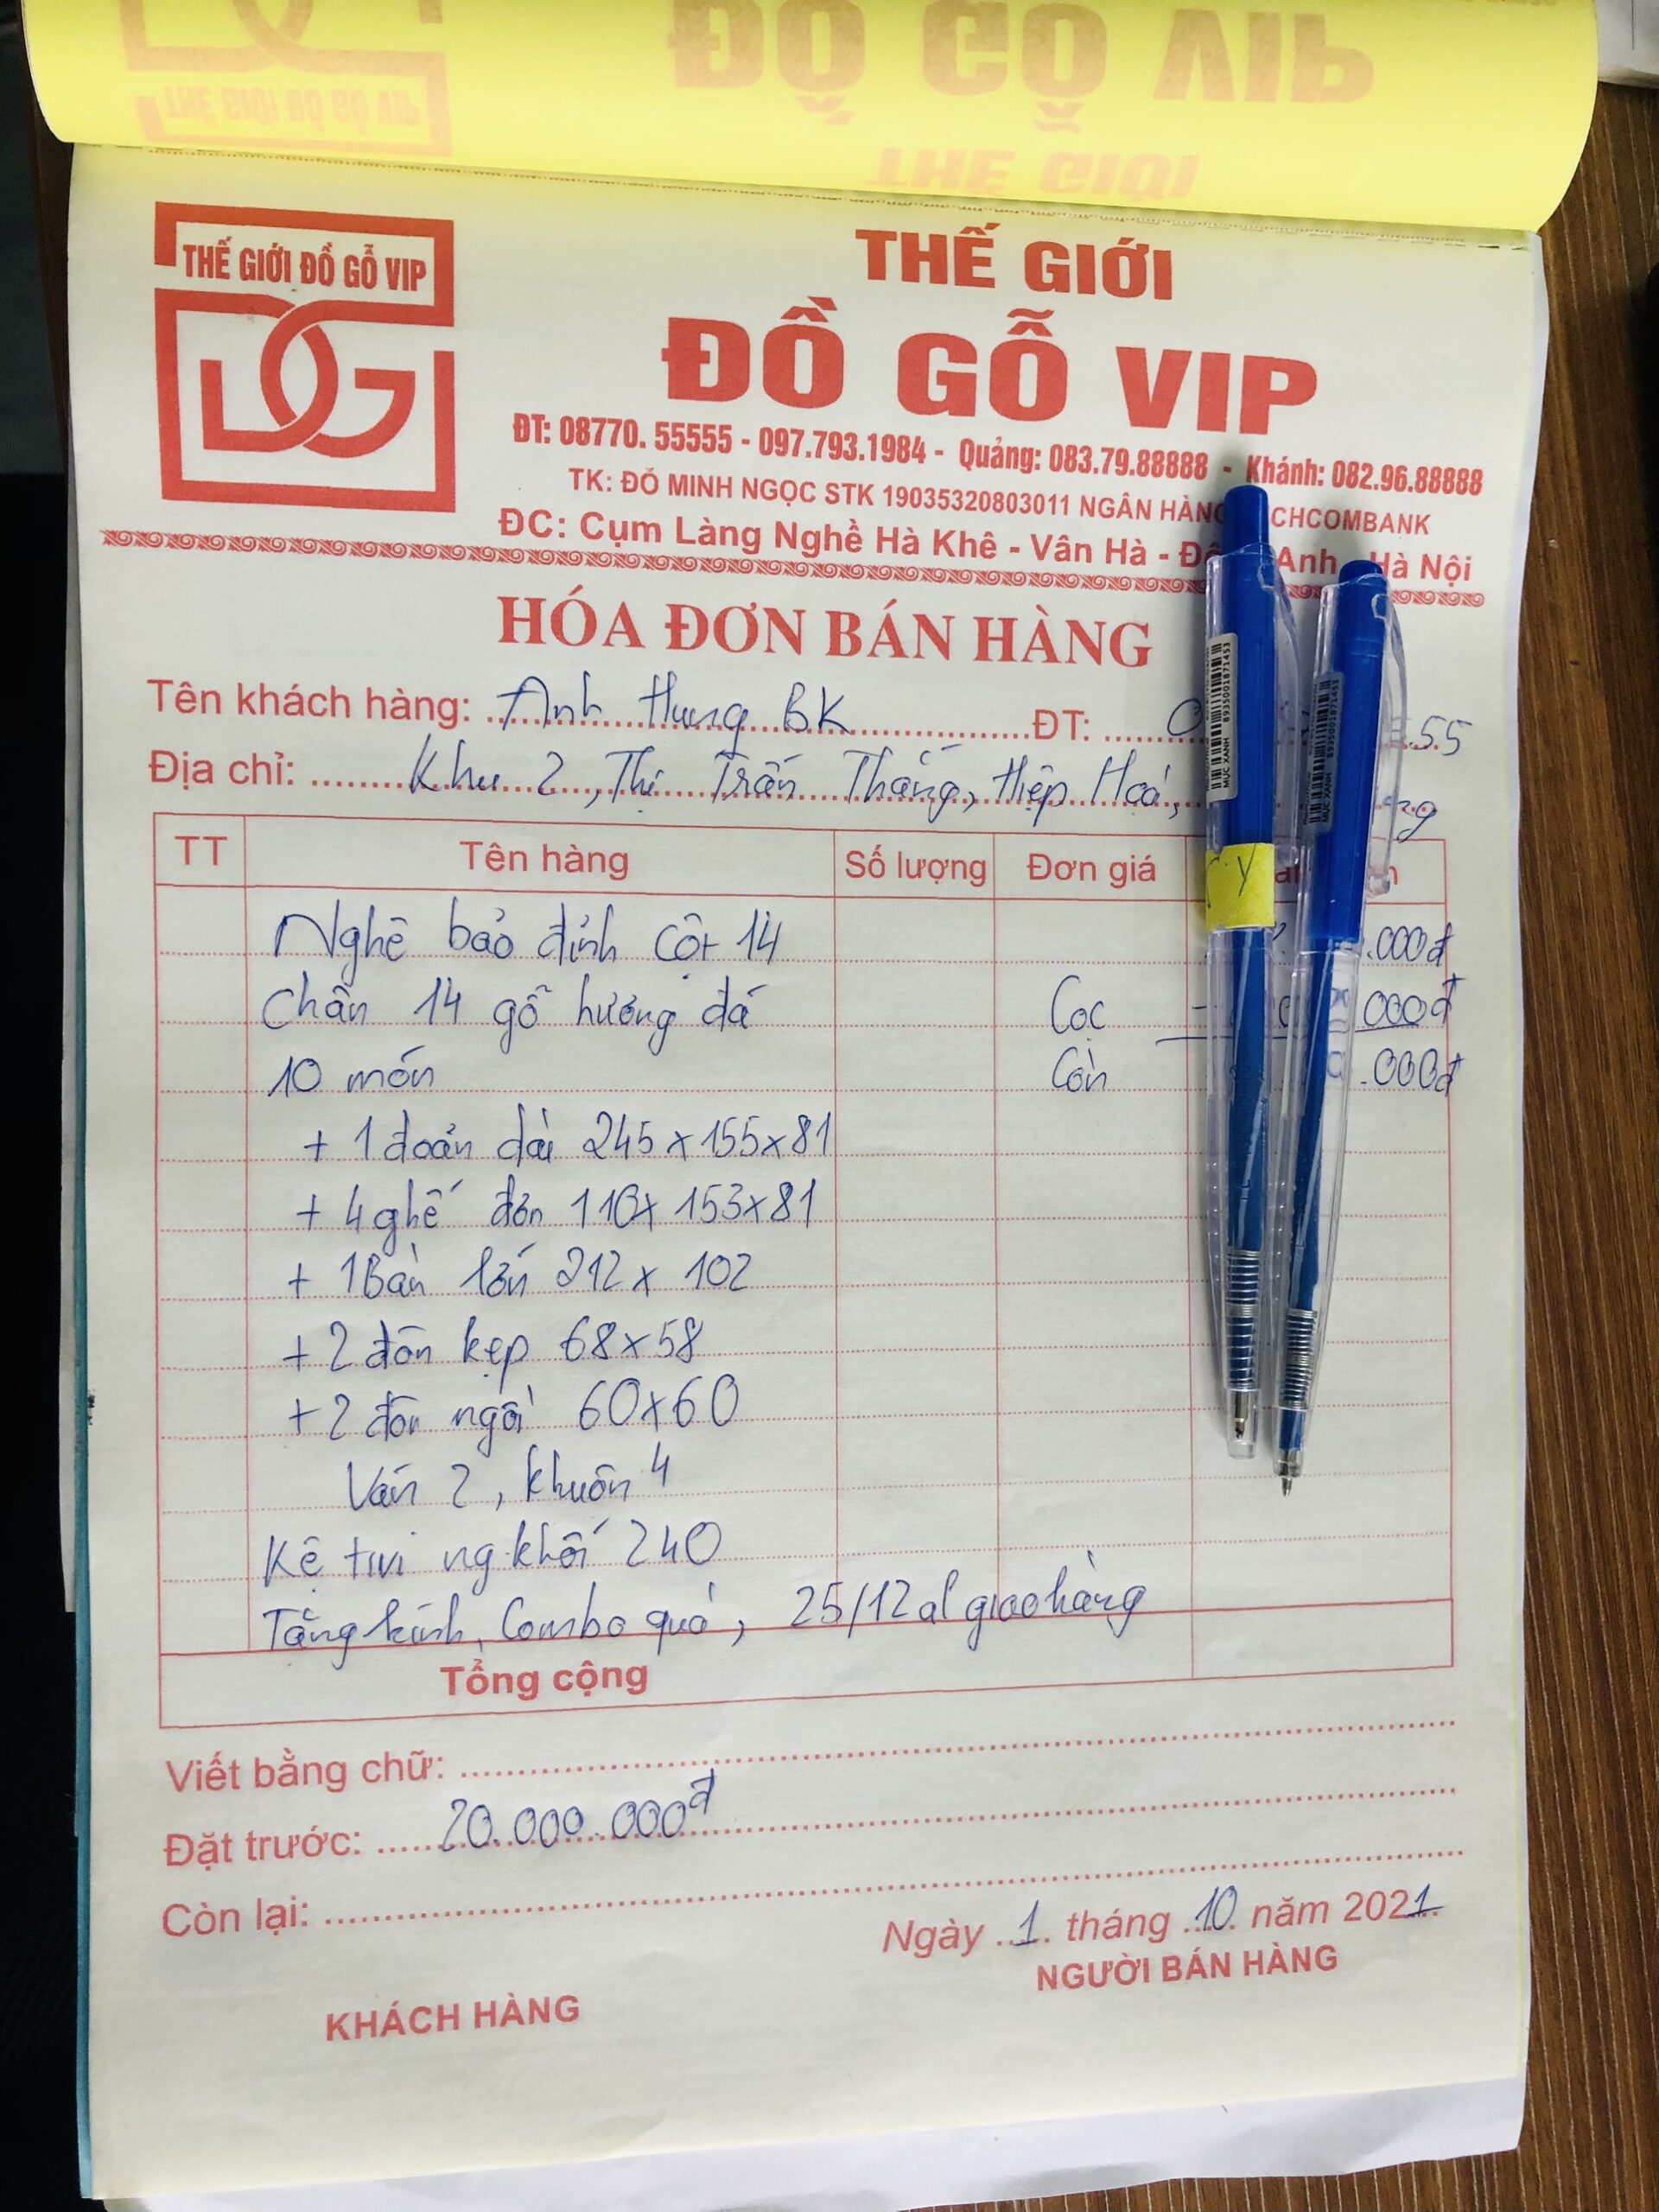 THẾ GIỚI ĐỒ GỖ VIP
THẾ GIỚI
ĐỒ GỖ VIP
ĐT: 08770. 55555 - 097.793.1984 - Quảng: 083.79.88888 - Khánh: 082.96.88888
TK: ĐỖ MINH NGỌC STK 19035320803011 NGÂN HÀNG CHCOMBANK
ĐC: Cụm Làng Nghề Hà Khê - Vân Hà - Anh - Hà Nội
HÓA ĐƠN BÁN HÀNG
Tên khách hàng: Anh Hưng BK ĐT: 0 55
Địa chỉ: Khu 2, Thị Trấn Thắng, Hiệp Hoà,
TT Tên hàng Số lượng Đơn giá
Nghê bảo đỉnh cột 14 .000đ
Chân 14 gỗ hương đá Cọc 000đ
10 món Còn .000đ
+ 1 đoản dài 245 x 155 x 81
+ 4 ghế đơn 110 x 153 x 81
+ 1 Bàn lớn 212 x 102
+ 2 đôn kẹp 68 x 58
+ 2 đôn ngồi 60 x 60
Ván 2, khuôn 4
Kệ tivi ng khối 240
Tặng kính, Combo quà, 25/12 al giao hàng
Tổng cộng
Viết bằng chữ:
Đặt trước: 20.000.000đ
Còn lại:
Ngày 1 tháng 10 năm 2021
NGƯỜI BÁN HÀNG
KHÁCH HÀNG
8935001871453
MỰC XANH
8935001871453
MỰC XANH